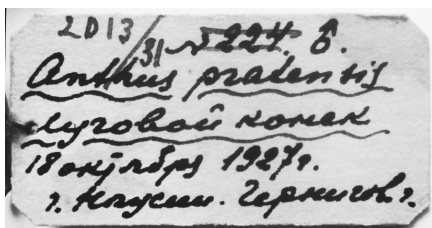 2013/31 №224. ♂.
Anthus pratensis
луговой конек
18 октября 1927 г.
г. Чернигов. г.